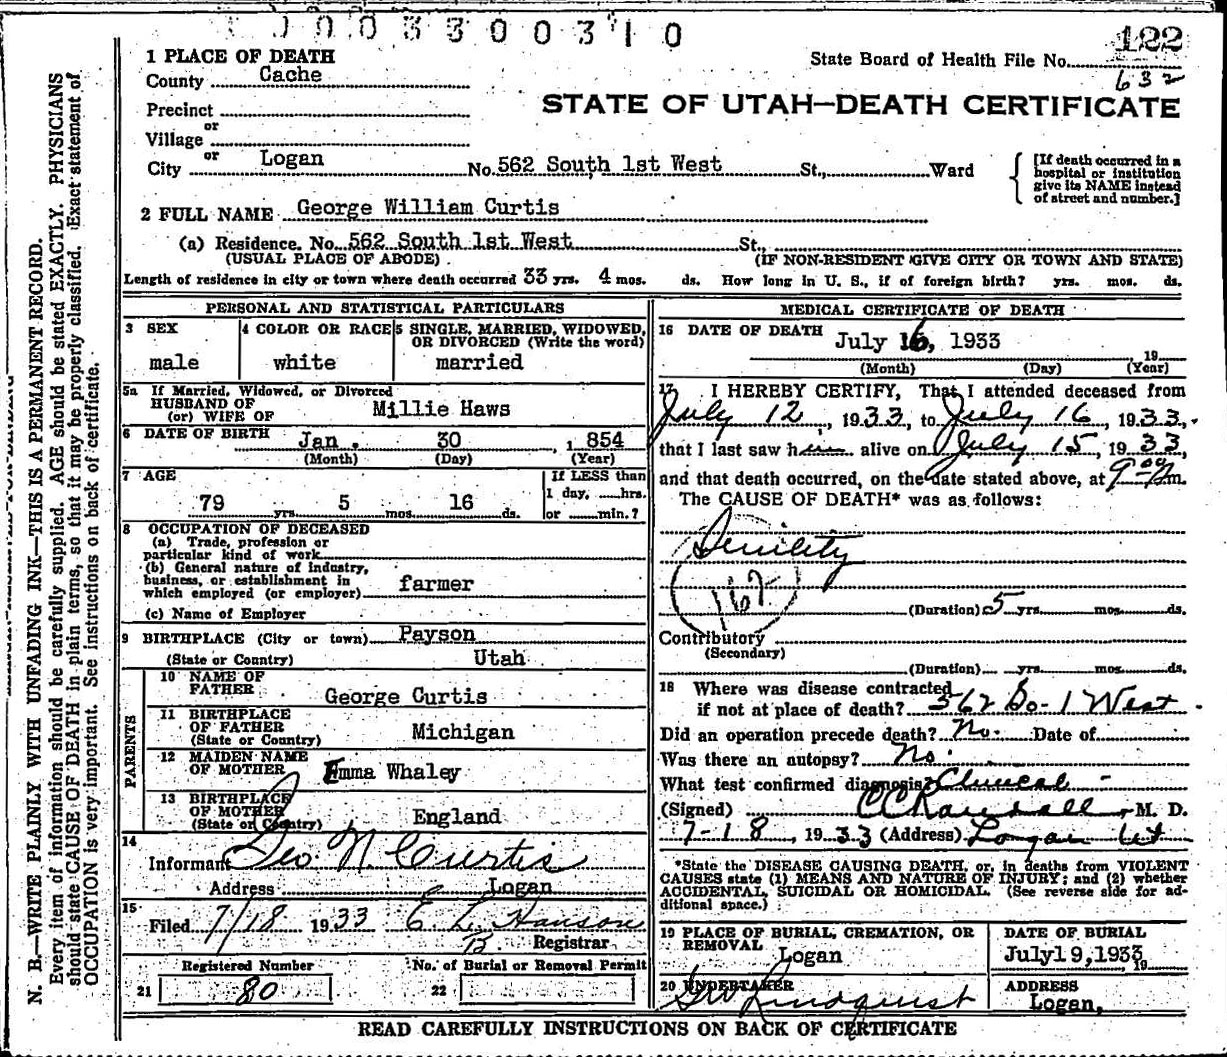 0 0 0 3 3 0 0 3 1 0
122
632
1 PLACE OF DEATH
County Cache
State Board of Health File No.
STATE OF UTAH—DEATH CERTIFICATE
Precinct
or
Village
or
City Logan No. 562 South 1st West St., Ward
[If death occurred in a
hospital or institution
give its NAME instead
of street and number.]
2 FULL NAME George William Curtis
(a) Residence. No. 562 South 1st West St.,
(USUAL PLACE OF ABODE) (IF NON-RESIDENT GIVE CITY OR TOWN AND STATE)
Length of residence in city or town where death occurred 33 yrs. 4 mos. ds. How long in U. S., if of foreign birth? yrs. mos. ds.
PERSONAL AND STATISTICAL PARTICULARS
3 SEX
male
4 COLOR OR RACE
white
5 SINGLE, MARRIED, WIDOWED,
OR DIVORCED (Write the word)
married
5a If Married, Widowed, or Divorced
HUSBAND OF
(or) WIFE OF Millie Haws
6 DATE OF BIRTH Jan. 30 1854
(Month) (Day) (Year)
7 AGE
79 yrs. 5 mos. 16 ds.
If LESS than
1 day, hrs.
or min.?
8 OCCUPATION OF DECEASED
(a) Trade, profession or
particular kind of work
(b) General nature of industry,
business, or establishment in
which employed (or employer) farmer
(c) Name of Employer
9 BIRTHPLACE (City or town) Payson
(State or Country) Utah
PARENTS
10 NAME OF
FATHER George Curtis
11 BIRTHPLACE
OF FATHER
(State or Country) Michigan
12 MAIDEN NAME
OF MOTHER Emma Whaley
13 BIRTHPLACE
OF MOTHER
(State or Country) England
14
Informant Geo N. Curtis
Address Logan
15
Filed 7/18 1933 E L Hanson
B. Registrar
Registered Number
21 80
No. of Burial or Removal Permit
22
MEDICAL CERTIFICATE OF DEATH
16 DATE OF DEATH
July 16, 1933
19
(Month) (Day) (Year)
17 I HEREBY CERTIFY, That I attended deceased from
July 12, 1933, to July 16, 1933,
that I last saw him alive on July 15, 1933,
and that death occurred, on the date stated above, at 9 00 m.
The CAUSE OF DEATH* was as follows:
Senility
162
(Duration) 5 yrs. mos. ds.
Contributory
(Secondary)
(Duration) yrs. mos. ds.
18 Where was disease contracted
if not at place of death? 562 So-1 West
Did an operation precede death? No. Date of
Was there an autopsy? No.
What test confirmed diagnosis? Clinical
(Signed) CC Randall M. D.
7-18, 1933 (Address) Logan Ut
*State the DISEASE CAUSING DEATH, or, in deaths from VIOLENT
CAUSES state (1) MEANS AND NATURE OF INJURY; and (2) whether
ACCIDENTAL, SUICIDAL OR HOMICIDAL. (See reverse side for ad-
ditional space.)
19 PLACE OF BURIAL, CREMATION, OR
REMOVAL Logan
DATE OF BURIAL
July19,1933
19
20 UNDERTAKER
Geo Lindquist
ADDRESS
Logan,
READ CAREFULLY INSTRUCTIONS ON BACK OF CERTIFICATE
N. B.—WRITE PLAINLY WITH UNFADING INK—THIS IS A PERMANENT RECORD.
Every item of information should be carefully supplied. AGE should be stated EXACTLY. PHYSICIANS
should state CAUSE OF DEATH in plain terms, so that it may be properly classified. Exact statement of
OCCUPATION is very important. See instructions on back of certificate.